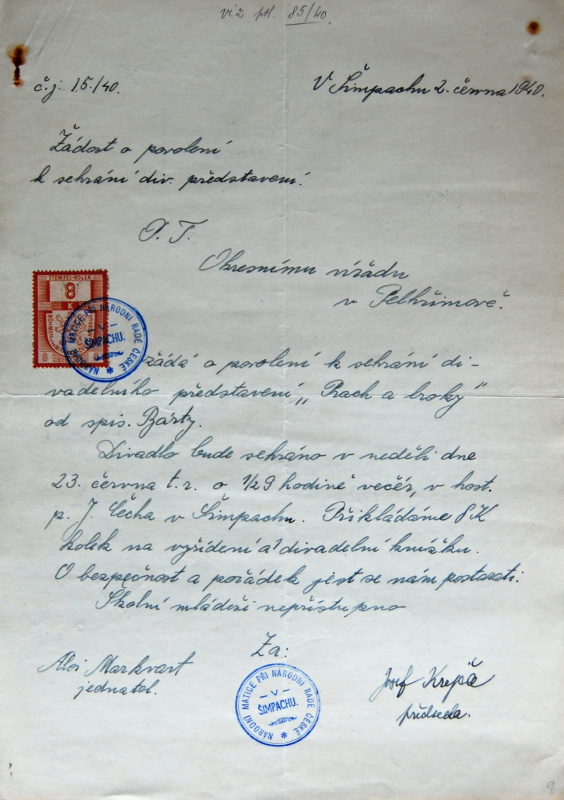 viz. př. 85/40.
č.j. 15/40.
V Šimpachu 2. června 1940.
Žádost o povolení
k sehrání div. představení.
P. T.
Okresnímu úřadu
v Pelhřimově.
STEMPEL-KOLEK
8
K
NÁRODNÍ MATICE PŘI NÁRODNÍ RADĚ ČESKÉ
– V –
ŠIMPACHU.
žádá o povolení k sehrání di-
vadelního představení „Prach a broky"
od spis. Bárty.
Divadlo bude sehráno v neděli dne
23. června t. r. o ½9 hodině večer, v host.
p. J. Čecha v Šimpachu. Přikládáme 8 K
kolek na vyřízení a divadelní knížku.
O bezpečnost a pořádek jest se nám postarati.
Školní mládeži nepřístupno
Za:
Aloi Markvart
jednatel.
NÁRODNÍ MATICE PŘI NÁRODNÍ RADĚ ČESKÉ
– V –
ŠIMPACHU.
Josef Krepš
předseda.